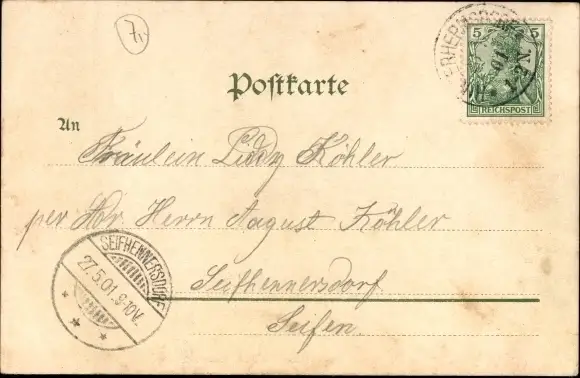 7
5 5
REICHSPOST
Postkarte
An
Fräulein Liddy Köhler
per Adr. Herrn August Köhler
Seifhennersdorf
Seifen.
SEIFHENNERSDORF
27.5.01.9-10V.